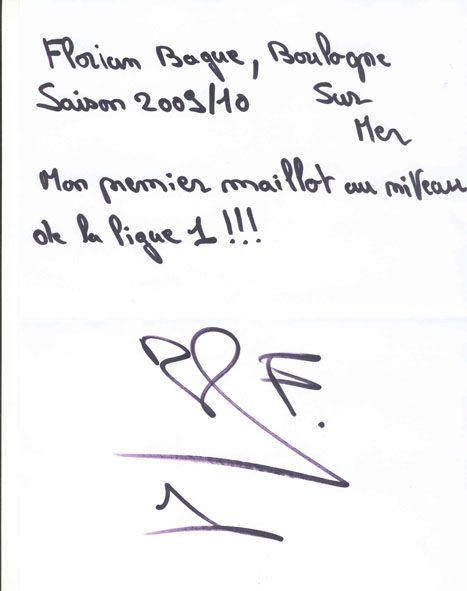 Florian Baque, Boulogne
Saison 2009/10 Sur
Mer
Mon premier maillot au niveau
de la ligue 1 !!!
F.
1